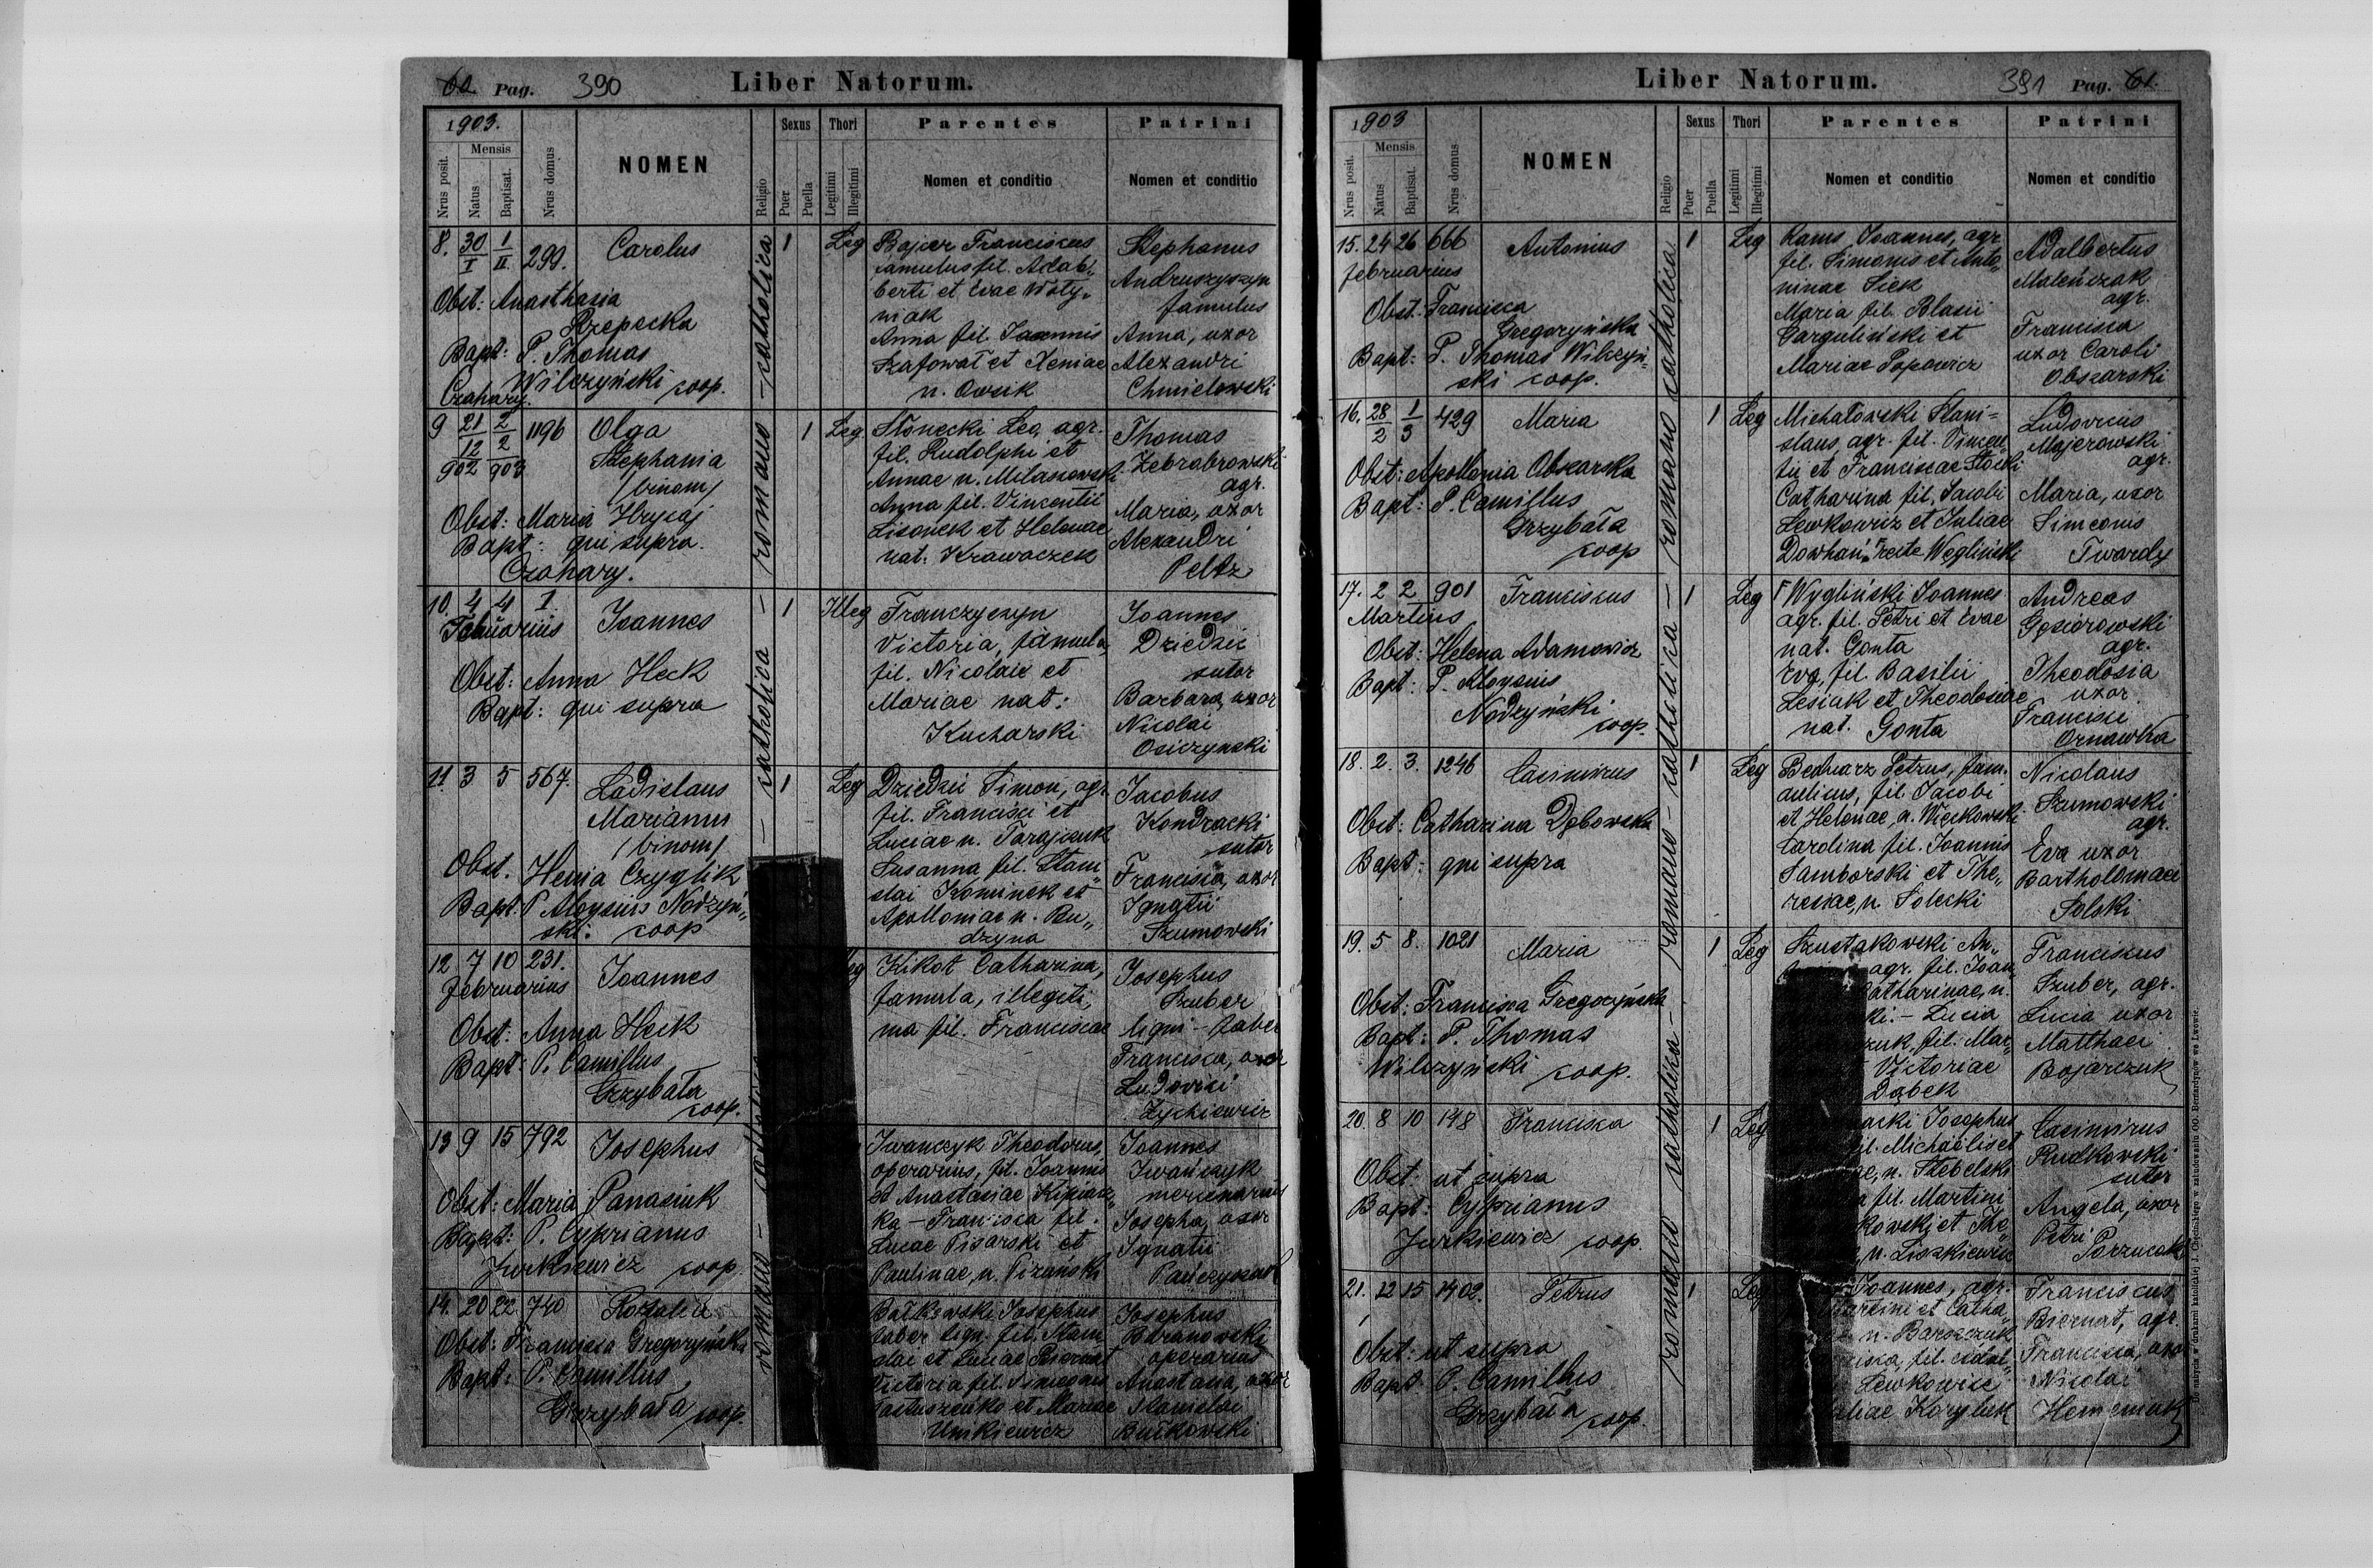 60 Pag. 390 Liber Natorum.
1903.
Mensis
Nrus posit.
Natus
Baptisat.
Nrus domus
NOMEN
Religio
Sexus
Puer
Puella
Thori
Legitimi
Illegitimi
Parentes
Nomen et conditio
Patrini
Nomen et conditio
romano - catholica - romano - catholica
8. 30/I 1/II 299. Carolus 1 Leg
Obst: Anasthasia
Rzepecka
Bapt: P. Thomas
Wilczyński coop.
Czahary.
Bajcer Franciscus
famulus fil. Adal„
berti et Evae Woły„
niak
Anna fil. Joannis
Szafował et Xeniae
n. Owsik
Stephanus
Andruszyszyn
famulus
Anna, uxor
Alexandri
Chmielowski
9 21/12 902 2/2 903 1196 Olga 1 Leg
Stephania
/binom/
Obst: Maria Hrycaj
Bapt: qui supra.
Czahary.
Słonecki Leo, agr.
fil. Rudolphi et
Annae n. Milanowski
Anna fil. Vincentii
Lisoniek et Helenae
nat: Krawaczek
Thomas
Zebrobrowski
agr.
Maria, uxor
Alexandri
Peltz
10. 4 4 I. Joannes 1 Illeg
Februarius
Obst: Anna Heck
Bapt: qui supra
Franczyczyn
Victoria, famula,
fil. Nicolai et
Mariae nat:
Kucharski
Joannes
Dziedzic
sutor
Barbara, uxor
Nicolai
Osiczynski
11. 3 5 567. Ladislaus 1 Leg
Marianus
/binom/
Obst. Henia Czyglik
Bapt. P Aloysius Nodzyń„
ski. coop
Dziedzic Simon, agr
fil. Francisci et
Luciae n. Tarajczuk
Susanna fil. Stani„
slai Kominek et
Apolloniae n. Bu„
dzyna
Jacobus
Kondracki
sutor
Francisca, uxor
Ignatii
Szumowski
12 7 10 231. Joannes
februarius
Obst: Anna Heck
Bapt: P. Camillus
Grzybała
coop.
Kikot Catharina,
famula, illegiti„
ma fil. Franciscae
Josephus
Szuber
ligni-faber
Francisca, uxor
Ludovici
Zychiewicz
13 9 15 792 Josephus
Obst: Maria Panasiuk
Bapt: P. Cyprianus
Jurkiewicz coop.
Iwanczyk Theodorus,
operarius, fil. Joannis
et Anastasiae
ka - Francisca fil.
Lucae Pisarski et
Paulinae, n. Pizunski
Joannes
Iwańczyk
mercenarius
Josepha, uxor
Ignatii
14. 20 22 740 Rozalia
Obst: Francisca Gregoryńska
Bapt: P. Camillus
Grzybała coop.
Bałkowski Josephus
faber lign. fil. Stani
slai et Luciae Biernat
Victoria fil. Simeonis
et Mariae
Unikiewicz
Josephus
Baranowski
operarius
Anastasia, uxor
Stanislai
Bułkowski
Liber Natorum. 391 Pag. 61.
1903
Mensis
Nrus posit.
Natus
Baptisat.
Nrus domus
NOMEN
Religio
Sexus
Puer
Puella
Thori
Legitimi
Illegitimi
Parentes
Nomen et conditio
Patrini
Nomen et conditio
romano - catholica - romano - catholica - romano catholica
15. 24 26 666 Antonius 1 Leg
februarius
Obst. Francisca
Gregoryńska
Bapt: P. Thomas Wilczyń„
ski coop.
Kams Joannes, agr
fil. Simonis et Anto„
ninae Siek
Maria fil. Blasii
Garguliński et
Mariae Popowicz
Adalbertus
Maleńczak
agr.
Francisca
uxor Caroli
Obszarski
16. 28/2 1/3 429 Maria 1 Leg
Obst: Apollonia Obszarska
Bapt: P. Camillus
Grzybała
coop
Michałowski Stani=
slaus, agr. fil. Vincen„
tii et Franciscae Słocki
Catharina fil. Jacobi
Lewkowicz et Juliae
Dowhań recte Węgliński
Ludovicus
Majerowski
agr.
Maria, uxor
Simeonis
Twardy
17. 2 2 901 Franciscus 1 Leg
Martius
Obst: Helena Adamowicz
Bapt: P. Aloysius
Nodzyński
coop.
Wygliński Joannes
agr. fil. Petri et Evae
nat. Gonta
Eva, fil. Basilii
Lesiak et Theodosiae
nat. Gonta
Andreas
Gęsiorowski
agr.
Theodosia
uxor
Francisci
Ornawka
18. 2. 3. 1246 Casimirus 1 Leg
Obst: Catharina Dębowska
Bapt: qui supra
Bednarz Petrus, fam.
aulicus, fil. Jacobi
et Helenae, n. Więckowski
Carolina fil. Joannis
Samborski et The„
resiae, n Solecki
Nicolaus
Szumowski
agr.
Eva uxor
Bartholomaei
Solski
19. 5 8. 1021 Maria 1 Leg
Obst: Francisca Gregoryńska
Bapt: P. Thomas
Wilczyński coop.
Szustakowski An„
agr. fil. Joan„
Catharinae, n.
ki. - Lucia
zuk, fil. Mar„
Victoriae
Dąbek
Franciscus
Szuber, agr.
Lucia uxor
Matthaei
Bojarczuk
20. 8 10 148 Francisca 1 Leg
Obst: ut supra
Bapt: Cyprianus
Jurkiewicz coop.
acki Josephus
fil. Michaëlis et
ae, n. Stebelski
a fil. Martini
kowski et The
n. Liszkiewicz
Casimirus
Rudkowski
sutor
Angela, uxor
Petri
Porzucek
21. 12 15 1402. Petrus 1 Leg
Obst: ut supra
Bapt. P. Camillus
Grzybała coop.
Joannes, agr.
Martini et Catha„
n. Barszczuk
cisca, fil. Adal„
Lewkowicz
aliae Koryluk
Franciscus
Biernat, agr.
Francisca, uxor
Nicolai
Hemeniuk
Do nabycia w drukarni katolickiej J. Chęcińskiego w zabudowaniu OO. Bernardynów we Lwowie.